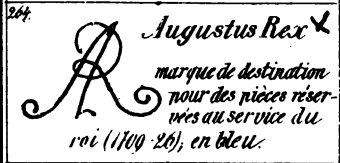 264.
Augustus Rex
AR
marque de destination
pour des pièces réser-
vées au service du
roi (1709-26); en bleu.